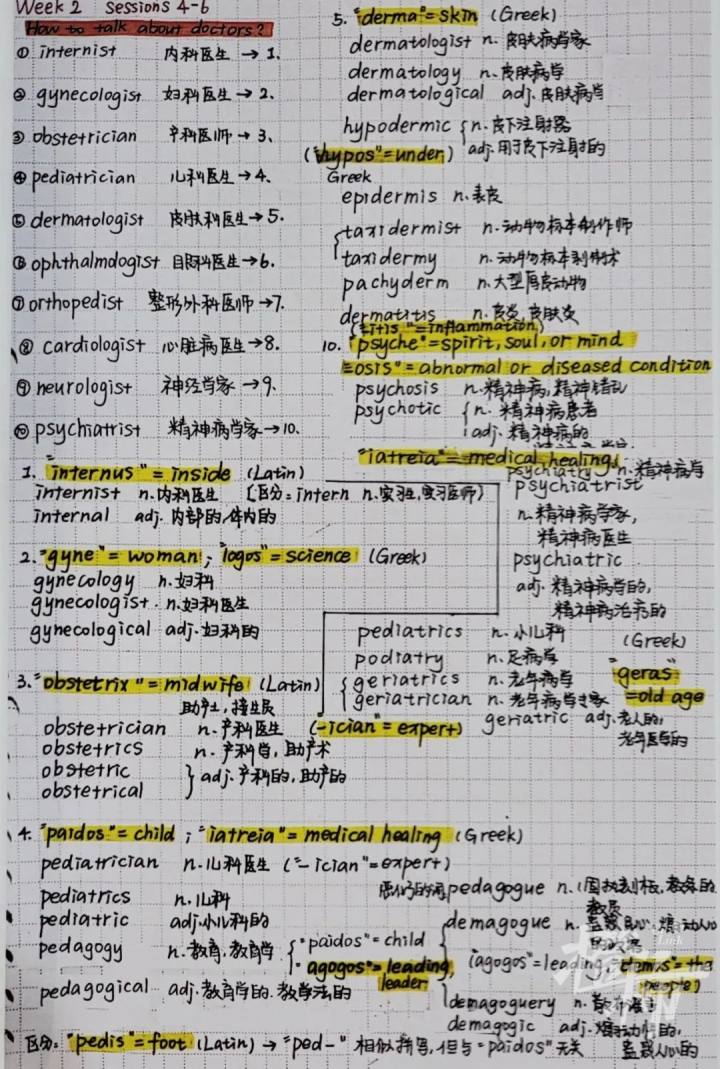 Week 2 Sessions 4-6
How to talk about doctors?
① internist 内科医生 → 1.
② gynecologist 妇科医生 → 2.
③ obstetrician 产科医师 → 3.
④ pediatrician 儿科医生 → 4.
⑤ dermatologist 皮肤科医生 → 5.
⑥ ophthalmologist 眼科医生 → 6.
⑦ orthopedist 整形外科医师 → 7.
⑧ cardiologist 心脏病医生 → 8.
⑨ neurologist 神经学家 → 9.
⑩ psychiatrist 精神病学家 → 10.
1. "internus" = inside (Latin)
internist n.内科医生 [区分: intern n.实习生,实习医师)
internal adj.内部的,体内的
2. "gyne" = woman; "logos" = science (Greek)
gynecology n.妇科
gynecologist n.妇科医生
gynecological adj.妇科的
3. "obstetrix" = midwife (Latin)
助产士,接生员
obstetrician n.产科医生 (-ician" = expert)
obstetrics n.产科学,助产术
obstetric
obstetrical } adj.产科的,助产的
4. "paidos" = child ; "iatreia" = medical healing (Greek)
pediatrician n.儿科医生 ("-ician" = expert)
pediatrics n.儿科
pediatric adj.小儿科的
pedagogy n.教育,教育学 { "paidos" = child
"agogos" = leading, leader
pedagogical adj.教育学的.教学法的
区分: "pedis" = foot (Latin) → "ped-" 相似拼写,但与"paidos"无关
5. "derma" = skin (Greek)
dermatologist n.皮肤病学家
dermatology n.皮肤病学
dermatological adj.皮肤病学
hypodermic { n.皮下注射器
("hypos" = under) adj.用于皮下注射的
Greek
epidermis n.表皮
taxidermist n.动物标本制作师
taxidermy n.动物标本剥制术
pachyderm n.大型厚皮动物
dermatitis n.皮炎,皮肤炎
("itis" = inflammation)
10. "psyche" = spirit, soul, or mind
"-osis" = abnormal or diseased condition
psychosis n.精神病,精神错乱
psychotic { n.精神病患者
adj.精神病的
"iatreia" = medical healing
psychiatry n.精神病学
psychiatrist
n.精神病学家,
精神病医生
psychiatric
adj.精神病学的,
精神病治病的
pediatrics n.小儿科
podiatry n.足病学
geriatrics n.老年病学
geriatrician n.老年病学专家
geriatric adj.老人的,
老年医学的
(Greek)
"geras"
= old age
pedagogue n.
教员
demagogue n.
(agogos" = leading, demos" = the people)
demagoguery n.
demagogic adj.煽动性的,
蛊惑人心的